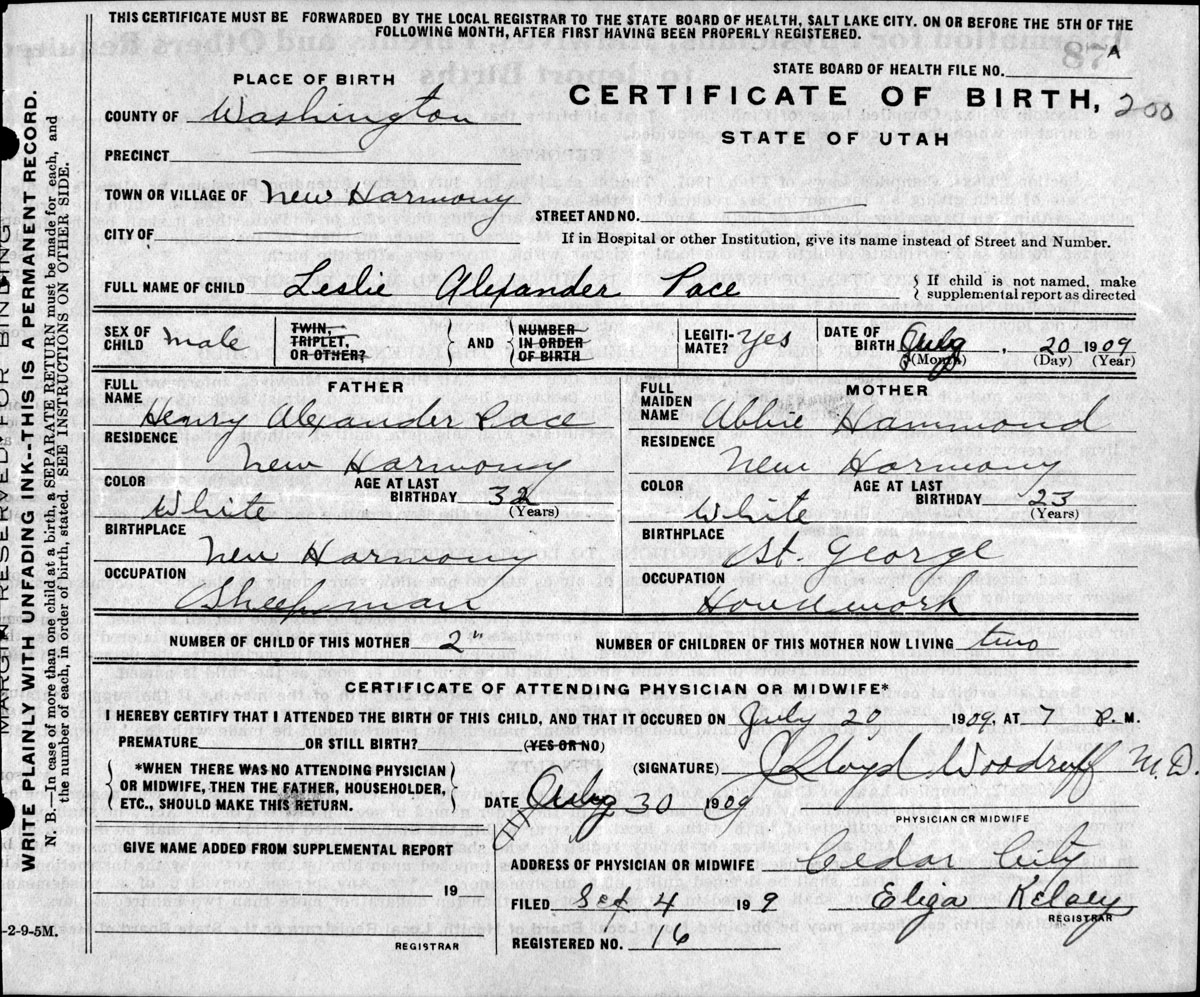 THIS CERTIFICATE MUST BE FORWARDED BY THE LOCAL REGISTRAR TO THE STATE BOARD OF HEALTH, SALT LAKE CITY. ON OR BEFORE THE 5TH OF THE
FOLLOWING MONTH, AFTER FIRST HAVING BEEN PROPERLY REGISTERED.
78 A
STATE BOARD OF HEALTH FILE NO.
PLACE OF BIRTH
CERTIFICATE OF BIRTH, 200
COUNTY OF Washington
STATE OF UTAH
PRECINCT
TOWN OR VILLAGE OF New Harmony
STREET AND NO.
CITY OF
If in Hospital or other Institution, give its name instead of Street and Number.
FULL NAME OF CHILD Leslie Alexander Pace
If child is not named, make
supplemental report as directed
SEX OF CHILD male
TWIN, TRIPLET, OR OTHER?
AND
NUMBER IN ORDER OF BIRTH
LEGITI-MATE? Yes
DATE OF BIRTH July, 20 1909
(Month) (Day) (Year)
FATHER
FULL NAME Henry Alexander Pace
RESIDENCE New Harmony
COLOR White
AGE AT LAST BIRTHDAY 32 (Years)
BIRTHPLACE New Harmony
OCCUPATION Sheepman
MOTHER
FULL MAIDEN NAME Abbie Hammond
RESIDENCE New Harmony
COLOR White
AGE AT LAST BIRTHDAY 23 (Years)
BIRTHPLACE St. George
OCCUPATION Housework
NUMBER OF CHILD OF THIS MOTHER 2"
NUMBER OF CHILDREN OF THIS MOTHER NOW LIVING two
CERTIFICATE OF ATTENDING PHYSICIAN OR MIDWIFE*
I HEREBY CERTIFY THAT I ATTENDED THE BIRTH OF THIS CHILD, AND THAT IT OCCURED ON July 20 1909, AT 7 P. M.
PREMATURE OR STILL BIRTH? (YES OR NO)
*WHEN THERE WAS NO ATTENDING PHYSICIAN
OR MIDWIFE, THEN THE FATHER, HOUSEHOLDER,
ETC., SHOULD MAKE THIS RETURN.
(SIGNATURE) Lloyd Woodruff M.D.
PHYSICIAN OR MIDWIFE
DATE 30 1909
GIVE NAME ADDED FROM SUPPLEMENTAL REPORT
19
REGISTRAR
ADDRESS OF PHYSICIAN OR MIDWIFE Cedar City
FILED Sep 4 19 9 Eliza Kelsey
REGISTRAR
REGISTERED NO. 16
-2-9-5M.
MARGIN RESERVED FOR BINDING
WRITE PLAINLY WITH UNFADING INK--THIS IS A PERMANENT RECORD.
N. B.—In case of more than one child at a birth, a SEPARATE RETURN must be made for each, and
the number of each, in order of birth, stated. SEE INSTRUCTIONS ON OTHER SIDE.